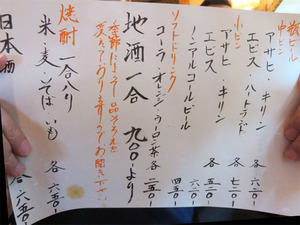 瓶ビール
中ビン
アサヒ・キリン 各六五〇-
エビス・ハートランド 各七〇〇-
小ビン
アサヒ キリン
エビス 各五〇〇-
ノンアルコールビール
ソフトドリンク
コーラ・オレンジ・ウーロン茶 各二五〇-
地酒一合 九〇〇-より
季節により品ぞろえを
変えており〼のでお聞き下さい
焼酎 一合八勺
米・麦・そば いも 各六五〇-
日本酒